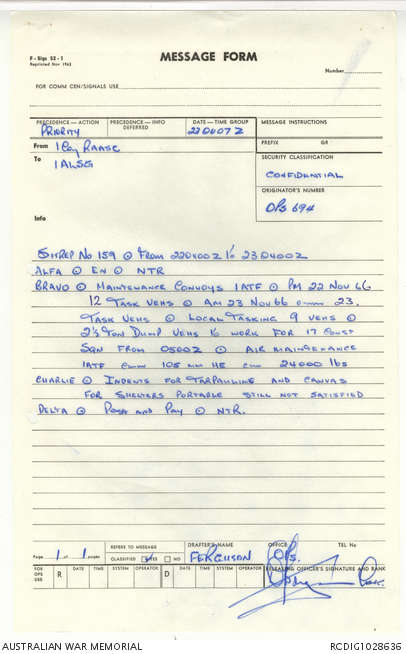 F - Sigs 52 - 1
Reprinted Nov 1965
MESSAGE FORM
Number
FOR COMM CEN/SIGNALS USE
PRECEDENCE—ACTION
PRIORITY
PRECEDENCE—INFO
DEFERRED
DATE—TIME GROUP
230407Z
MESSAGE INSTRUCTIONS
From 1 Coy RAASC
PREFIX GR
To 1 ALSG
SECURITY CLASSIFICATION
CONFIDENTIAL
ORIGINATOR'S NUMBER
OPS 694
Info
SITREP No 159 ⊙ FROM 220400Z TO 230400Z
ALFA ⊙ EN ⊙ NTR
BRAVO ⊙ MAINTENANCE CONVOYS 1ATF ⊙ PM 22 NOV 66
12 TASK VEHS ⊙ AM 23 NOV 66 cmm 23.
TASK VEHS ⊙ LOCAL TASKING 9 VEHS ⊙
2½ TON DUMP VEHS TO WORK FOR 17 CONST
SQN FROM 0500Z ⊙ AIR MAINTENANCE
1ATF cmm 105 MM HE cmm 24000 lbs
CHARLIE ⊙ INDENTS FOR TARPAULINS AND CANVAS
FOR SHELTERS PORTABLE STILL NOT SATISFIED
DELTA ⊙ POSN AND PAY ⊙ NTR.
Page 1 of 1 pages
REFERS TO MESSAGE
CLASSIFIED YES NO
DRAFTER'S NAME
FERGUSON
OFFICE
OPS.
TEL No
RELEASING OFFICER'S SIGNATURE AND RANK
FOR OPS USE
R DATE TIME SYSTEM OPERATOR D DATE TIME SYSTEM OPERATOR
AUSTRALIAN WAR MEMORIAL
RCDIG1028636